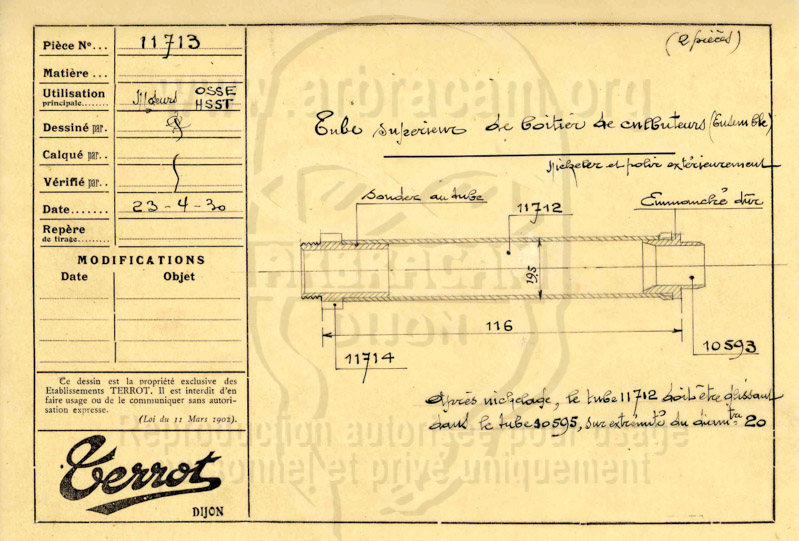 Pièce Nº... 11713
Matière ...
Utilisation
principale........ Moteurs OSSE
HSST
Dessiné par.
Calqué par..
Vérifié par..
Date....... 23-4-30
Repère
de tirage.......
MODIFICATIONS
Date Objet
Ce dessin est la propriété exclusive des
Etablissements TERROT. Il est interdit d'en
faire usage ou de le communiquer sans autori-
sation expresse.
(Loi du 11 Mars 1902).
Terrot
DIJON
(2 pièces)
www.arbracam.org
Tube superieur de boitier de culbuteurs (Ensemble)
Nickeler et polir extérieurement
Souder au tube
11712
Emmanché dur
ARBRACAM
DIJON
19,5
116
11714
10593
Après nickelage, le tube 11712 doit être glissant
dans le tube 10595, sur extrémité du diamètre 20
Reproduction autorisée pour usage
personnel et privé uniquement